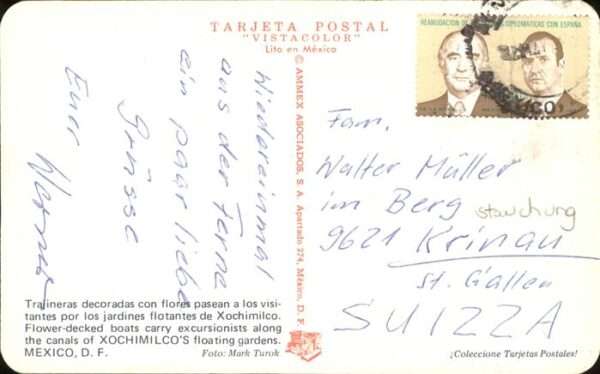 TARJETA POSTAL
"VISTACOLOR"
Lito en México
REANUDACION DE DIPLOMATICAS CON ESPAÑA
MEXICO
© AMMEX ASOCIADOS, S. A. Apartado 274, México, D. F.
Wiedereinmal
aus der Ferne
ein paar liebe
Grüsse
Euer
Werner
Fam.
Walter Müller
im Berg
stauchung
9621 Krinau
St. Gallen
SUIZZA
Trajineras decoradas con flores pasean a los visi-
tantes por los jardines flotantes de Xochimilco.
Flower-decked boats carry excursionists along
the canals of XOCHIMILCO'S floating gardens.
MEXICO, D. F. Foto: Mark Turok
¡Coleccione Tarjetas Postales!